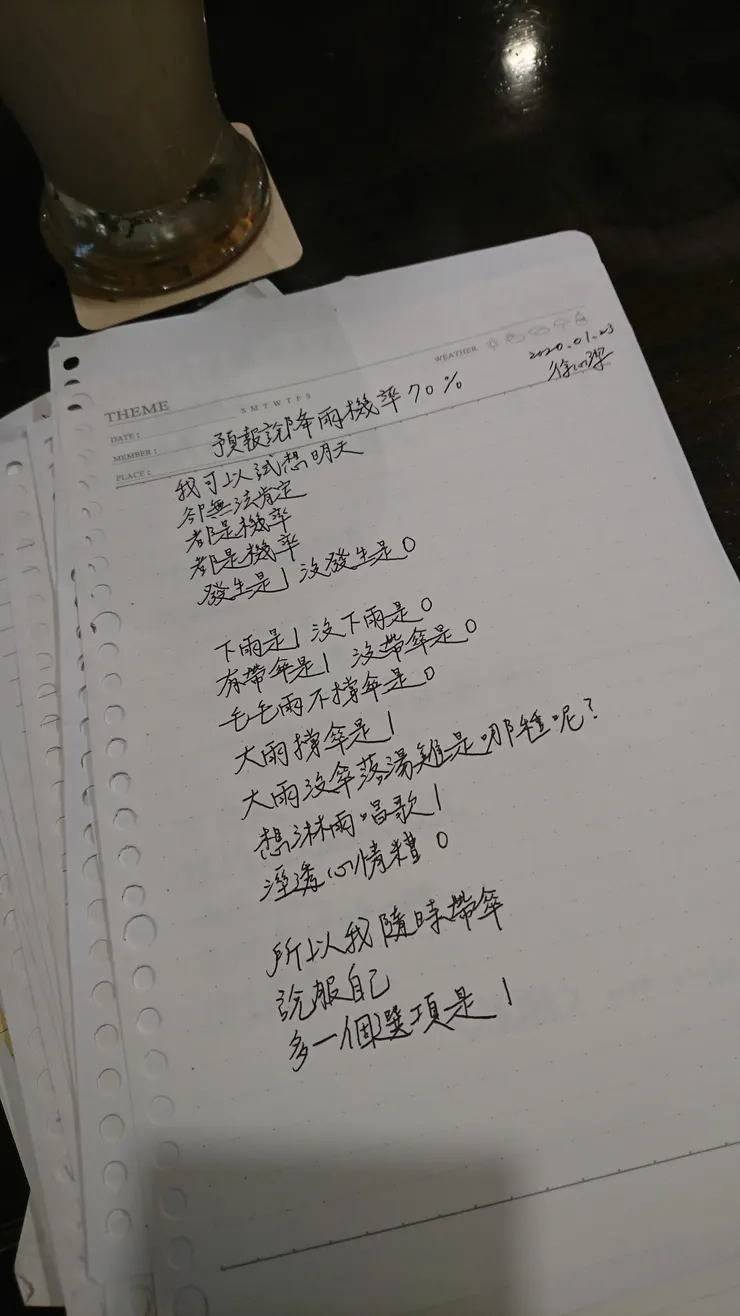 WEATHER
2020.01.23
徐心潔
THEME
S M T W T F S
DATE :
MEMBER :
PLACE :
預報說降雨機率70%
我可以試想明天
卻無法肯定
都是機率
都是機率
發生是1 沒發生是0
下雨是1 沒下雨是0
有帶傘是1 沒帶傘是0
毛毛雨不撐傘是0
大雨撐傘是1
大雨沒傘落湯雞是哪種呢?
想淋雨唱歌1
溼透心情糟0
所以我隨時帶傘
說服自己
多一個選項是1